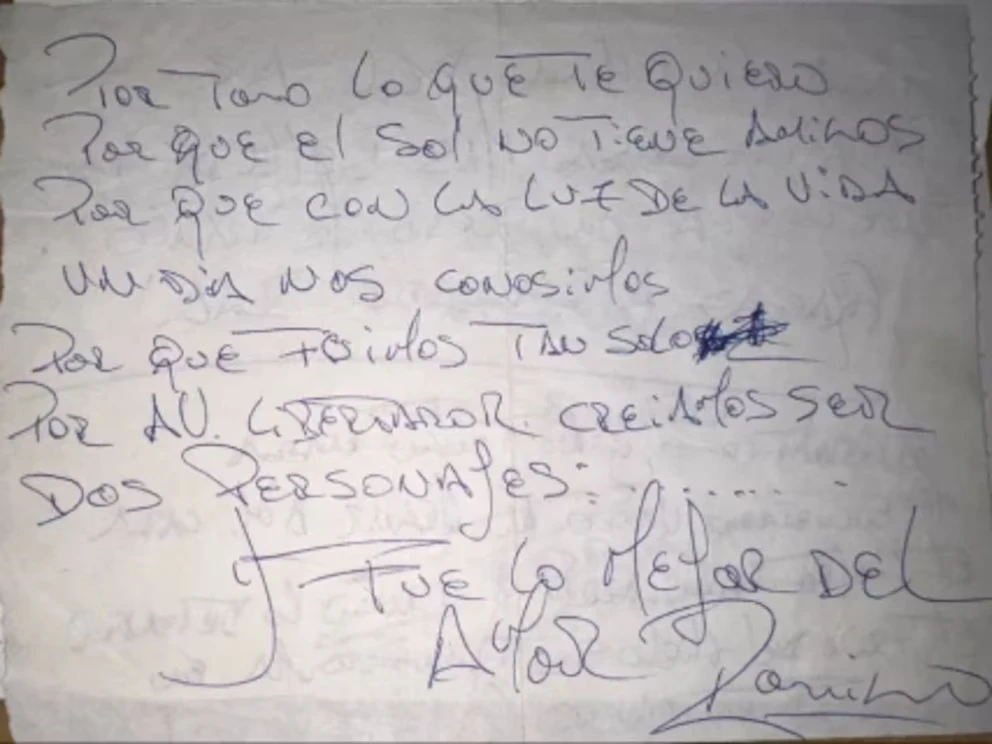 Por TODO LO QUE TE QUIERO
Por QUE El Sol NO TiENE
Por QUE CON LA LUZ DE LA ViDA
UN DiA NOS CONOSiMOS
Por QUE FUiMOS TAN SOLO
POR AV. LiBERTADOR. CREIAMOS SER
DOS PERSONAJES:........
FUE LO MEJOR DEL
AMOR